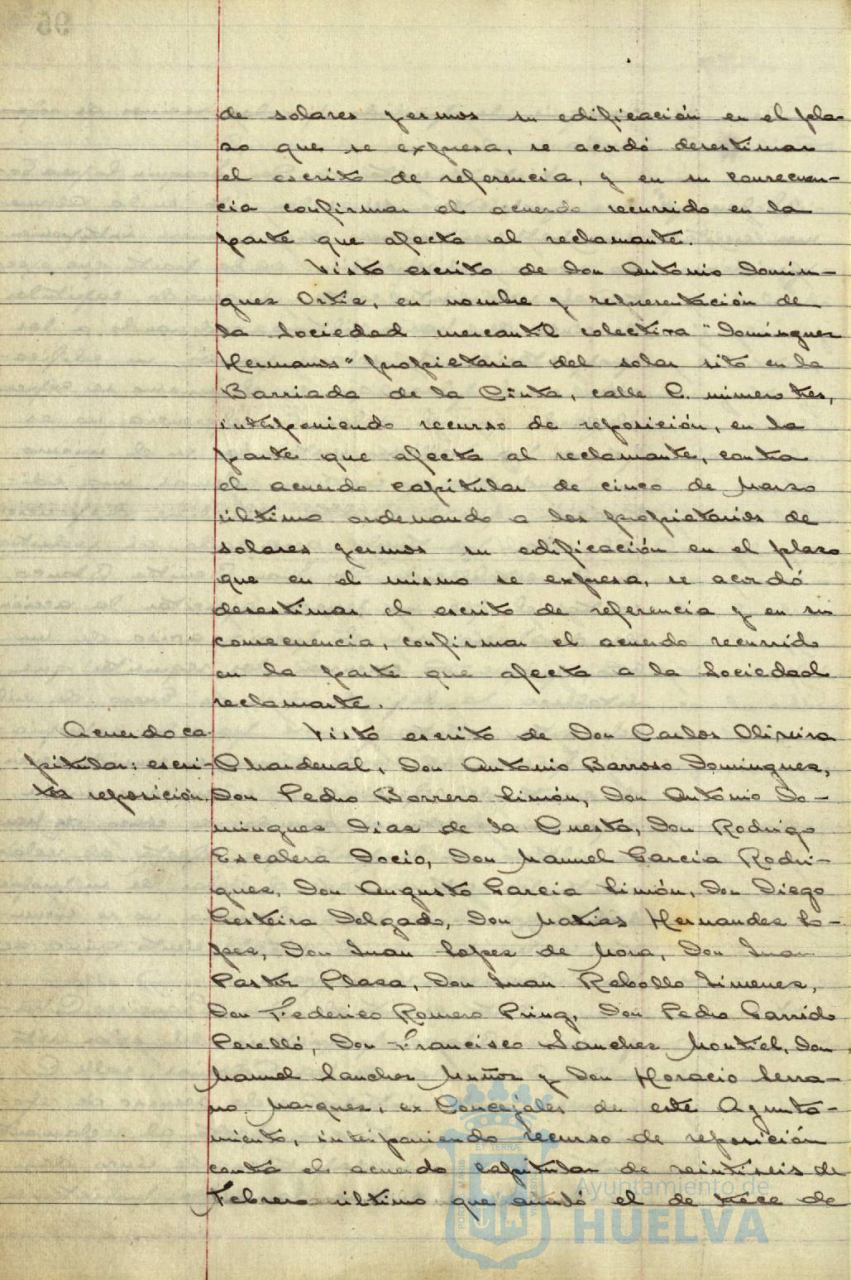 de solares yermos su edificación en el pla-
zo que se expresa, se acordó desestimar
el escrito de referencia, y en su consecuen-
cia confirmar el acuerdo recurrido en la
parte que afecta al reclamante.
Visto escrito de Don Antonio Domin-
guez Ortiz, en nombre y representación de
la Sociedad mercantil colectiva "Dominguez
Hermanos" propietaria del solar sito en la
Barriada de la Cinta, calle C. número tres,
interponiendo recurso de reposición, en la
parte que afecta al reclamante, contra
el acuerdo capitular de cinco de Marzo
último ordenando a los propietarios de
solares yermos su edificación en el plazo
que en el mismo se expresa, se acordó
desestimar el escrito de referencia y en su
consecuencia, confirmar el acuerdo recurrido
en la parte que afecta a la Sociedad
reclamante.
Acuerdo ca
pitular: escri-
tos reposición.
Visto escrito de Don Carlos Oliveira
Chardenal, Don Antonio Barroso Dominguez,
Don Pedro Borrero Limón, Don Antonio Do-
minguez Diaz de la Cuesta, Don Rodrigo
Escalera Docio, Don Manuel Garcia Rodri-
guez, Don Augusto Garcia Limón, Don Diego
Gesteira Delgado, Don Matias Hernandez Lo-
pez, Don Juan Lopez de Mora, Don Juan
Pastor Plaza, Don Juan Rebollo Jimenez,
Don Federico Romero Pring, Don Pedro Garrido
Perelló, Don Francisco Sanchez Montiel, Don
Manuel Sanchez Muñoz y Don Horacio Serra-
no Marquez, ex Concejales de este Ayunta-
miento, interponiendo recurso de reposición
contra el acuerdo capitular de veintiseis de
Febrero último que anuló el de trece de
Ayuntamiento de
HUELVA